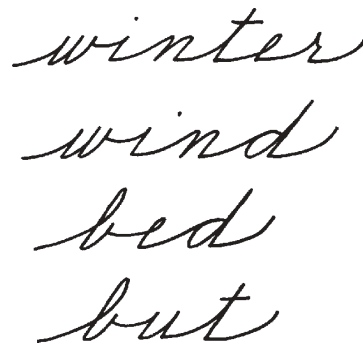 winter
wind
bed
but